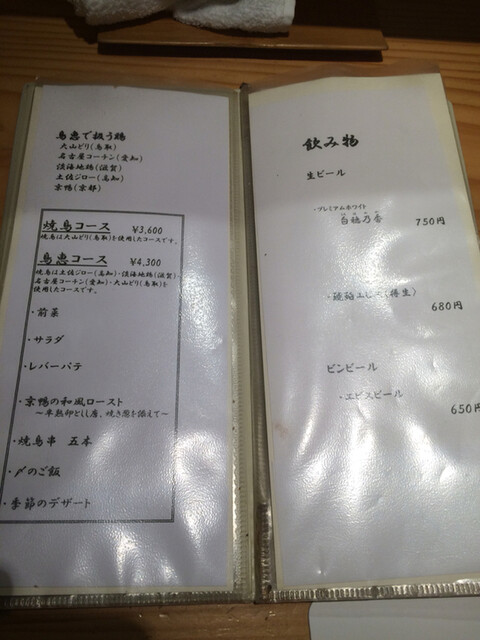 鳥恵で扱う鶏
大山どり(鳥取)
名古屋コーチン(愛知)
淡海地鶏(滋賀)
土佐ジロー(高知)
京鴨(京都)
焼鳥コース ¥3,600
焼鳥は大山どり(鳥取)を使用したコースです。
鳥恵コース ¥4,300
焼鳥は土佐ジロー(高知)・淡海地鶏(滋賀)
名古屋コーチン(愛知)・大山どり(鳥取)を
使用したコースです。
・前菜
・サラダ
・レバーパテ
・京鴨の和風ロースト
〜半熟卵としし唐、焼き葱を添えて〜
・焼鳥串 五本
・〆のご飯
・季節のデザート
飲み物
生ビール
・プレミアムホワイト
白穂乃香 750円
・琥珀ヱビス(樽生)
680円
ビンビール
・エビスビール
650円